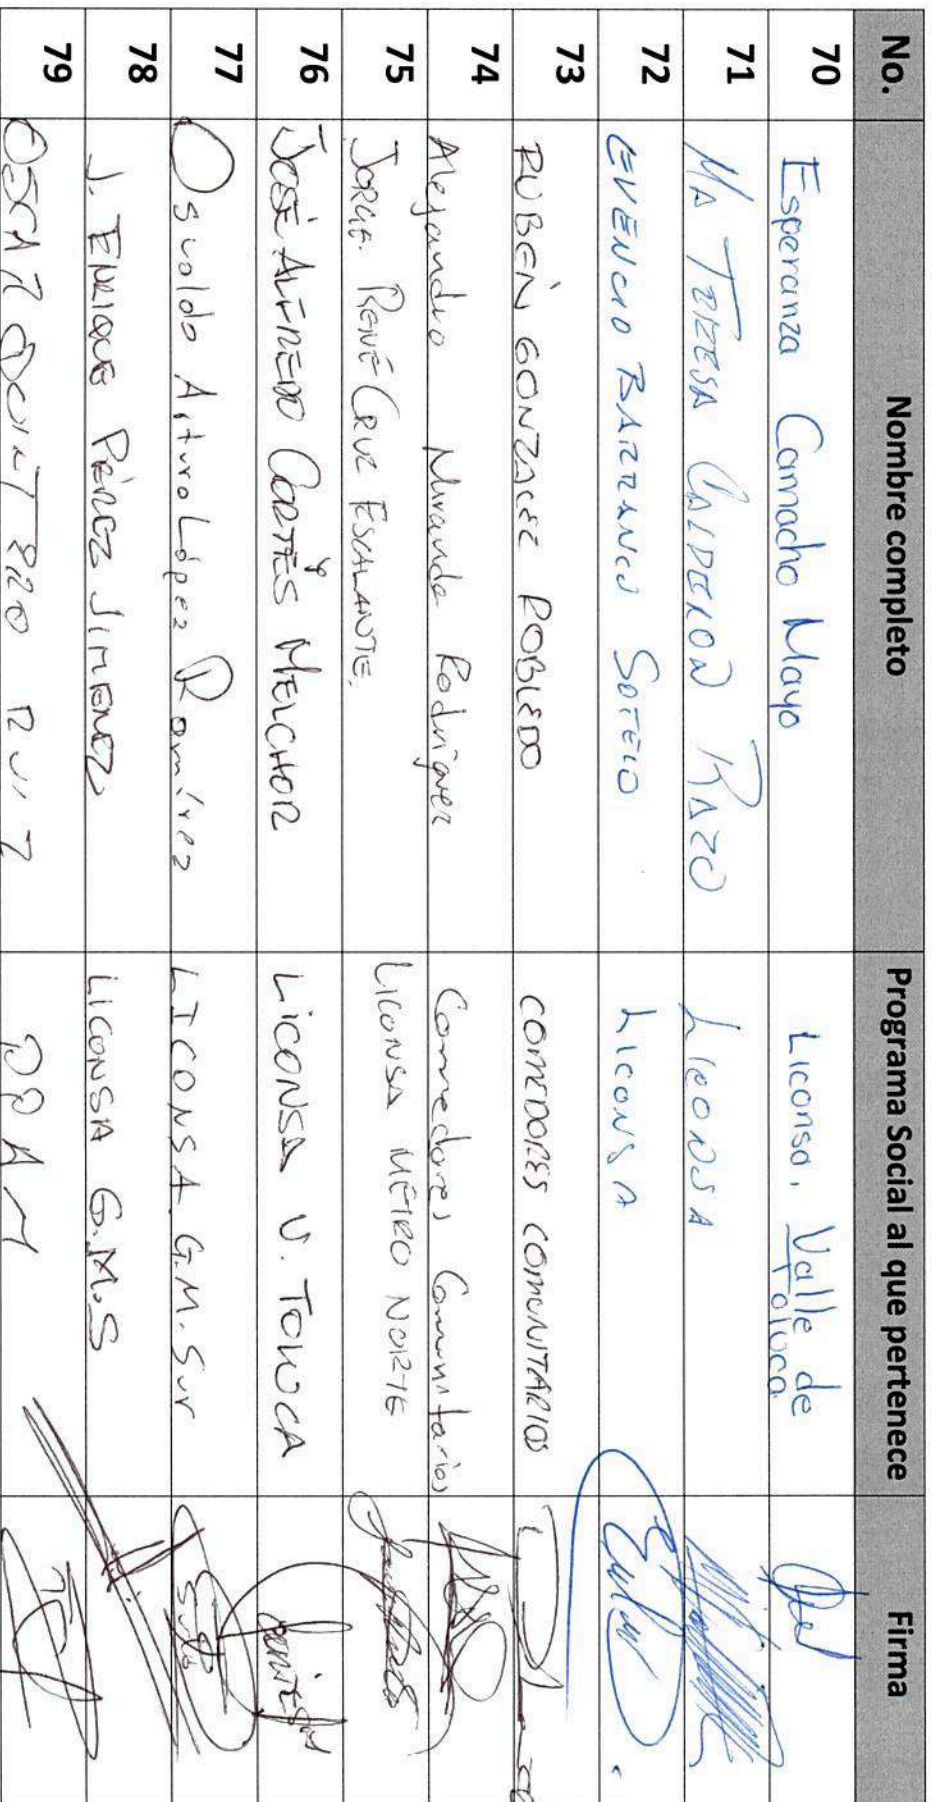 No. Nombre completo Programa Social al que pertenece Firma
70 Esperanza Camacho Mayo Liconsa, Valle de Toluca
71 MA TERESA CALDERON RAZO LICONSA
72 EVENCIO BARRANCO SOTELO LICONSA
73 RUBÉN GONZALEZ ROBLEDO COMEDORES COMUNITARIOS
74 Alejandro Miranda Rodriguez Comedores Comunitarios
75 JORGE RENÉ CRUZ ESCALANTE. LICONSA METRO NORTE
76 JOSÉ ALFREDO CORTÉS MELCHOR LICONSA V. TOLUCA
77 Osvaldo Arturo López Ramírez LICONSA G.M. Sur
78 J. ENRIQUE PÉREZ JIMENEZ LICONSA G.M.S
79 OSCAR RUIZ